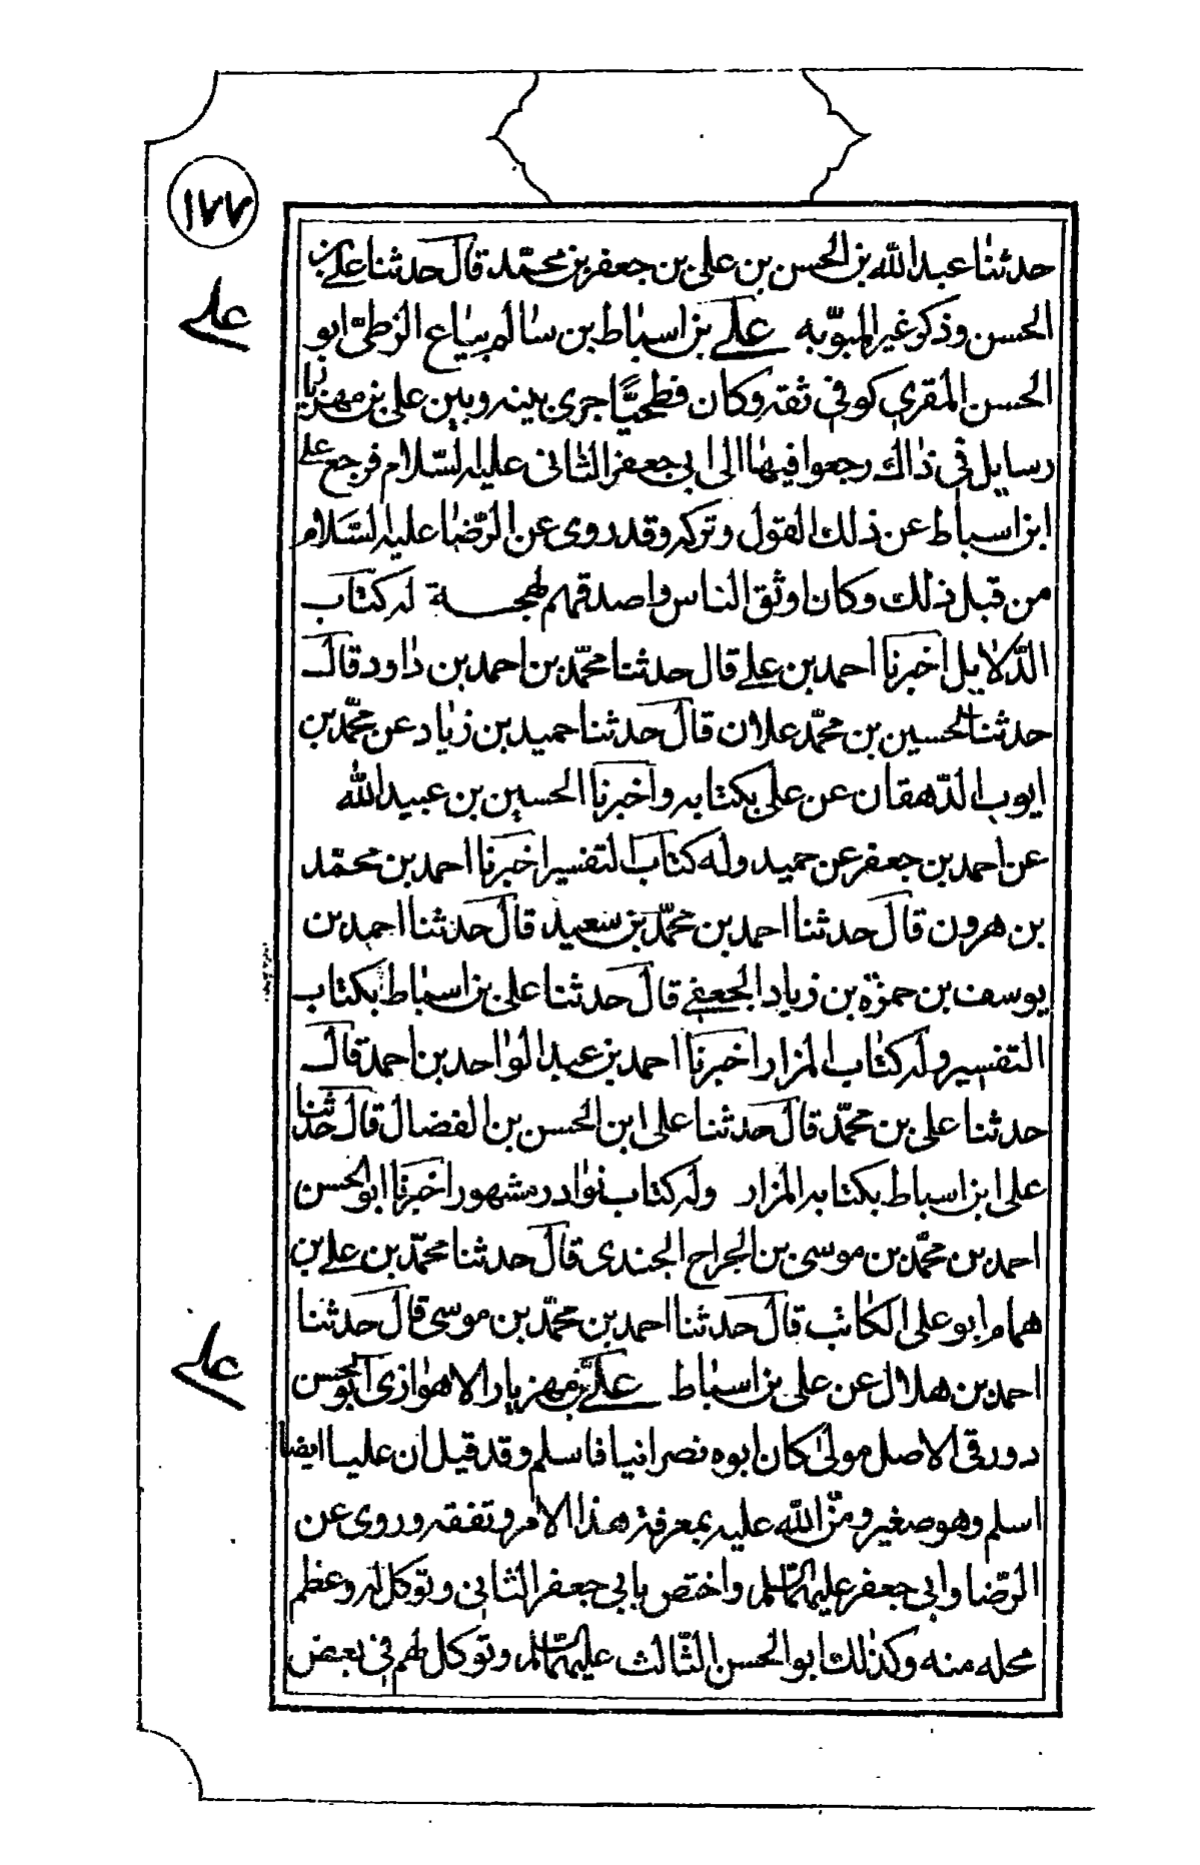 ١٧٧
حدثنا عبد الله بن الحسن بن علي بن جعفر بن محمّد قال حدثنا علي بن
علي
الحسن وذكر غير المبوّبه علي بن اسباط بن سالم بياع الزطىّ ابو
الحسن المقري كوفي ثقه وكان فطحيًّا جرى بينه وبين علي بن مهزيار
رسايل في ذلك رجعوا فيها الى ابي جعفر الثانى عليه السّلام فرجع على
ابن اسباط عن ذلك القول وتركه وقد روى عن الرّضا عليه السّلام
من قبل ذلك وكان اوثق الناس واصدقهم لهجة له كتاب
الدّلايل اخبرنا احمد بن علي قال حدثنا محمّد بن احمد بن داود قال
حدثنا الحسين بن محمّد علان قال حدثنا حميد بن زياد عن محمّد بن
ايوب الدّهقان عن على بكتابه واخبرنا الحسين بن عبيد الله
عن احمد بن جعفر عن حميد وله كتاب التفسير اخبرنا احمد بن محمّد
بن هرون قال حدثنا احمد بن محمّد بن سعيد قال حدثنا احمد بن
يوسف بن حمزة بن زياد الجعفي قال حدثنا على بن اسباط بكتاب
التفسير وله كتاب المزار اخبرنا احمد بن عبد الواحد بن احمد قال
حدثنا على بن محمّد قال حدثنا على ابن الحسن بن الفضال قال حدثنا
على ابن اسباط بكتابه المزار وله كتاب نوادر مشهور اخبرنا ابو الحسن
احمد بن محمّد بن موسى بن الجراح الجندى قال حدثنا محمّد بن علي بن
همام ابو على الكاتب قال حدثنا احمد بن محمّد بن موسى قال حدثنا
علي
احمد بن هلال عن على بن اسباط علي بن مهزيار الاهوازى ابو الحسن
دورقى الاصل مولىٰ كان ابوه نصرانيا فاسلم وقد قيل ان عليا ايضا
اسلم وهو صغير ومنّ الله عليه بمعرفة هذا الامر وتفقه وروى عن
الرّضا وابي جعفر عليهما السّلم واختص بابي جعفر الثانى وتوكل له وعظم
محله منه وكذلك ابو الحسن الثّالث عليهم السّلم وتوكل لهم في بعض